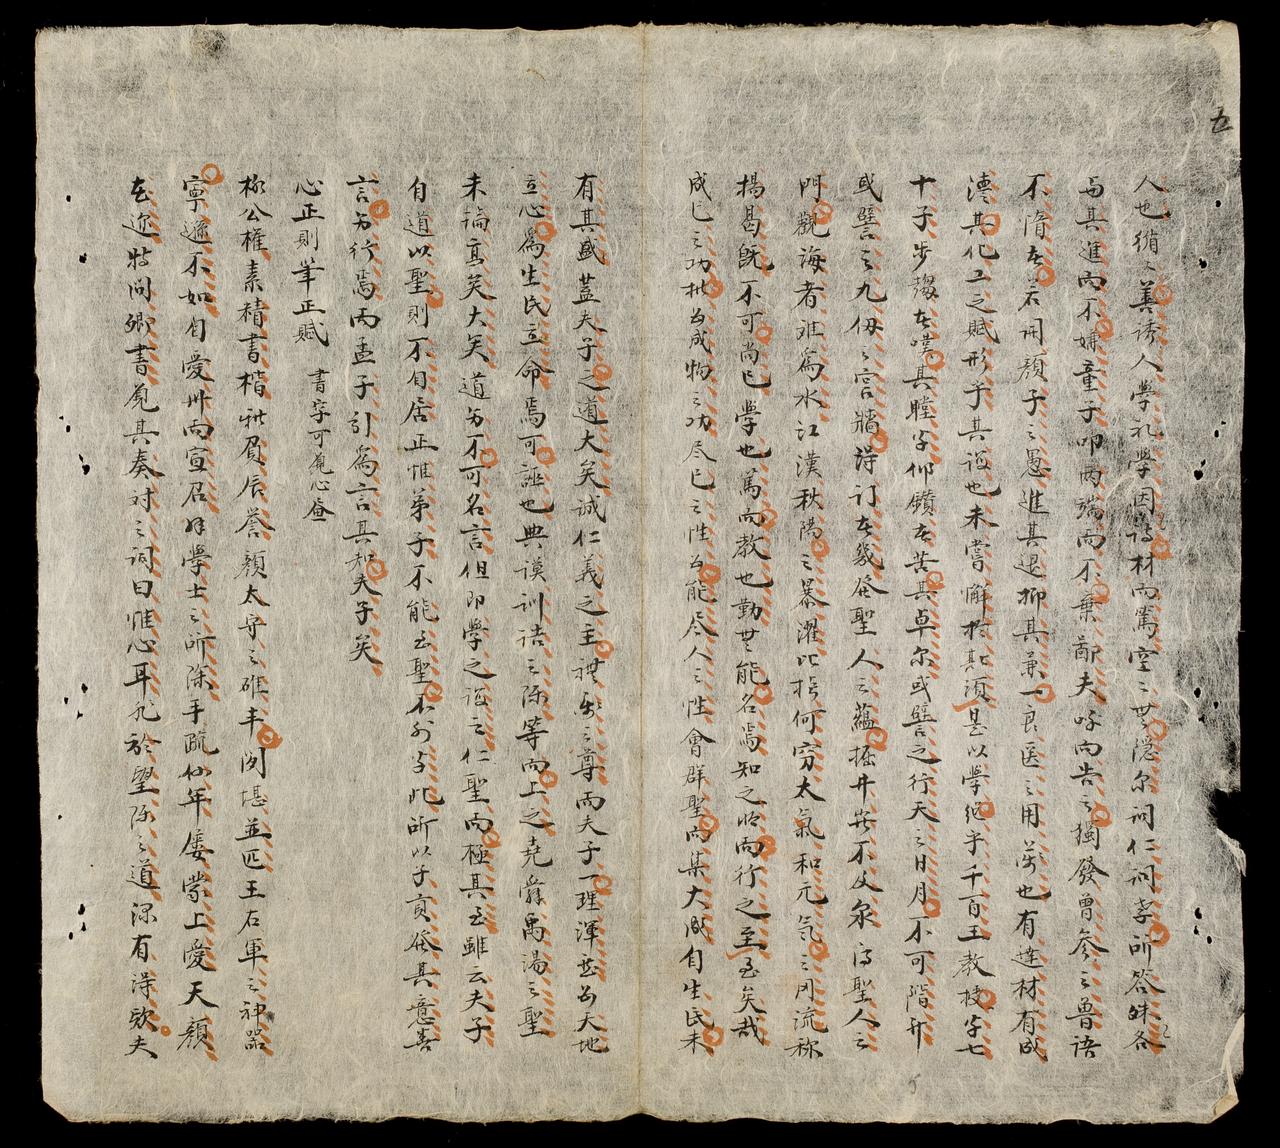 五
人也循〻善誘人學礼學因誨材而篤空〻無隱尔詞仁詞孝所答殊各
與其進而不嫌童子叩兩端而不棄鄙夫呼而告之獨發曾參之魯語
不惰在若用顏子之愚進其退抑其兼一良医之用藥也有達材有成
德其化工之賦形乎其誨也未嘗懈於斯須甚以學繼乎千百王教授乎七
十子步趨在嘆其瞠乎仰鑽在苦其卓尔或譬之行天之日月不可階升
或譬之九仞之宮牆得訂在幾發聖人之蘊掘井昔不及泉而聖人之
門觀海者难為水江漢秋陽之暴濯比擬何窮太氣和元気之周流称
揚曷既不可尚已學也篤而教也勤無能名焉知之明而行之至至矣哉
成己之功推為成物之功尽己之性為能尽人之性會群聖而集大成自生民未
有其盛蓋夫子之道大矣誠仁義之主禮樂之尊而夫子一理渾然為天地
立心為生民立命焉可誣也典謨訓誥之際等而上之堯舜禹湯之聖
未論高矣大矣道另不可名言但即學之誨之仁聖而極其至雖云夫子
自道以聖則不自居正惟弟子不能云聖不外乎此所以子貢發其意善
言另行焉而孟子引為言其知夫子矣
心正則筆正賦 書字可見心畫
柳公權素精書楷雅負辰譽顏太守之碓丰閑堪並匹王右軍之神器
寧遜不如自愛卅而宣召拜學士之所除手疏仙年屢蒙上愛天顏
在迩特問卿書見其奏对之詞曰惟心耳非於望際之道深有得欤夫